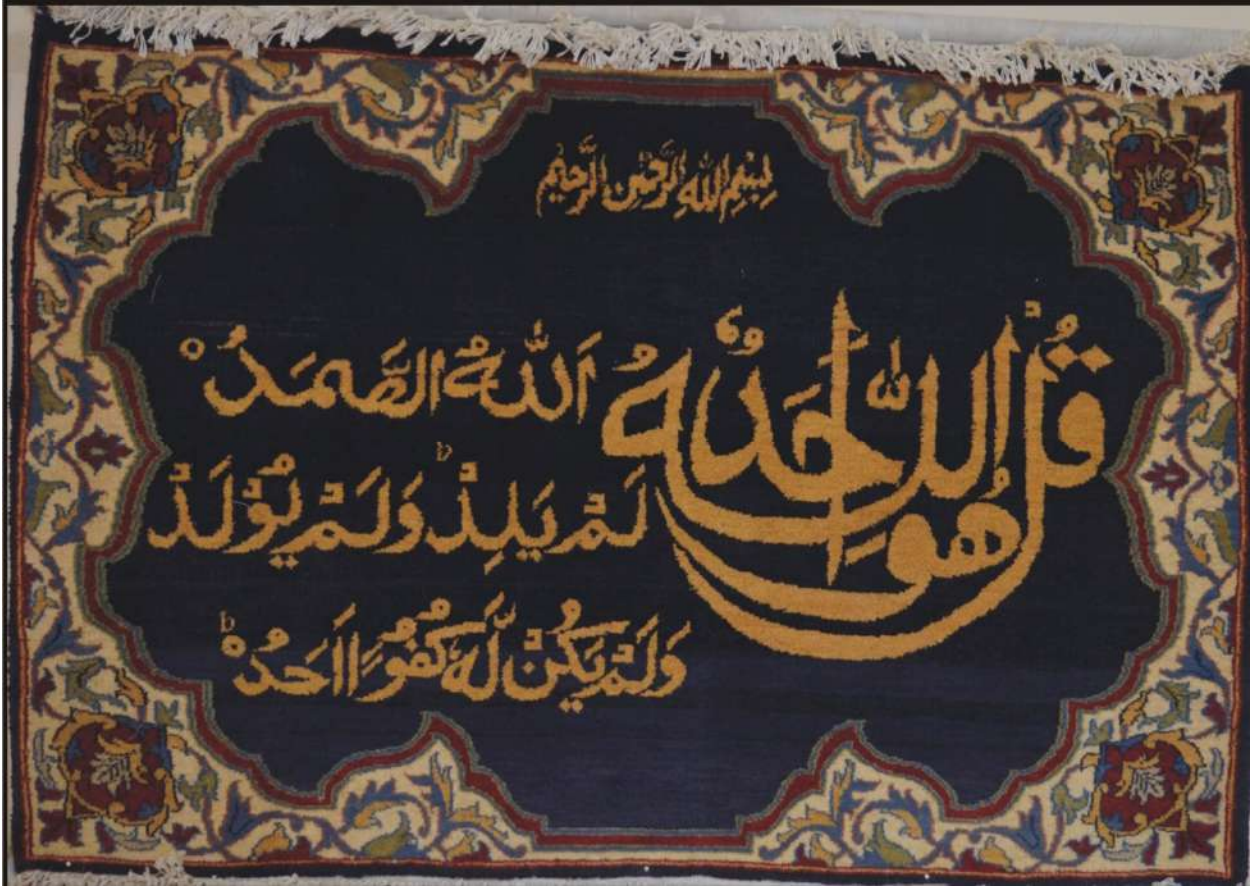 بِسْمِ اللهِ الرَّحْمٰنِ الرَّحِيْمِ
قُلْ هُوَ اللّٰهُ اَحَدٌ
اَللّٰهُ الصَّمَدُ
لَمْ يَلِدْ وَلَمْ يُوْلَدْ
وَلَمْ يَكُنْ لَّهٗ كُفُوًا اَحَدٌ